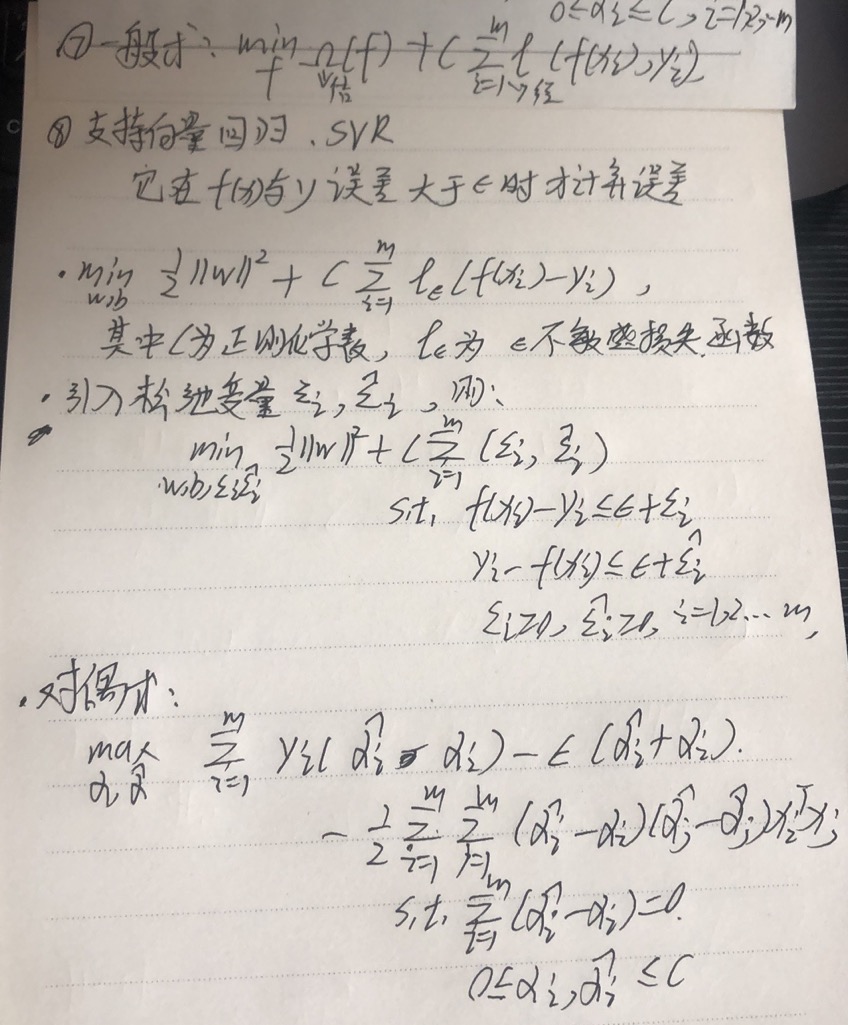 0≤αi≤C, i=1,2,…m
⑦一般式: min_f Ω(f) + C ∑_{i=1}^{m} ℓ(f(xi), yi)
结 经
⑧支持向量回归. SVR
它在f(x)与y误差大于ϵ时才计算误差
· min_{w,b} ½||w||² + C ∑_{i=1}^{m} ℓ_ϵ(f(xi)-yi),
其中C为正则化学数, ℓ_ϵ为 ϵ不敏感损失函数
· 引入松弛变量 ξi, ξ̂i, 则:
min_{w,b,ξi,ξ̂i} ½||w||² + C ∑_{i=1}^{m} (ξi, ξ̂i)
s,t, f(xi)-yi≤ϵ+ξi
yi-f(xi)≤ϵ+ξ̂i
ξi≥0, ξ̂i≥0, i=1,2…m,
· 对偶式:
max_{α,α̂} ∑_{i=1}^{m} yi(α̂i - αi) - ϵ(α̂i+αi).
- ½ ∑_{i=1}^{m} ∑_{j=1}^{m} (α̂i-αi)(α̂j-α̂j)xi^T xj
s,t, ∑_{i=1}^{m} (α̂i-αi)=0.
0≤αi,α̂i≤C